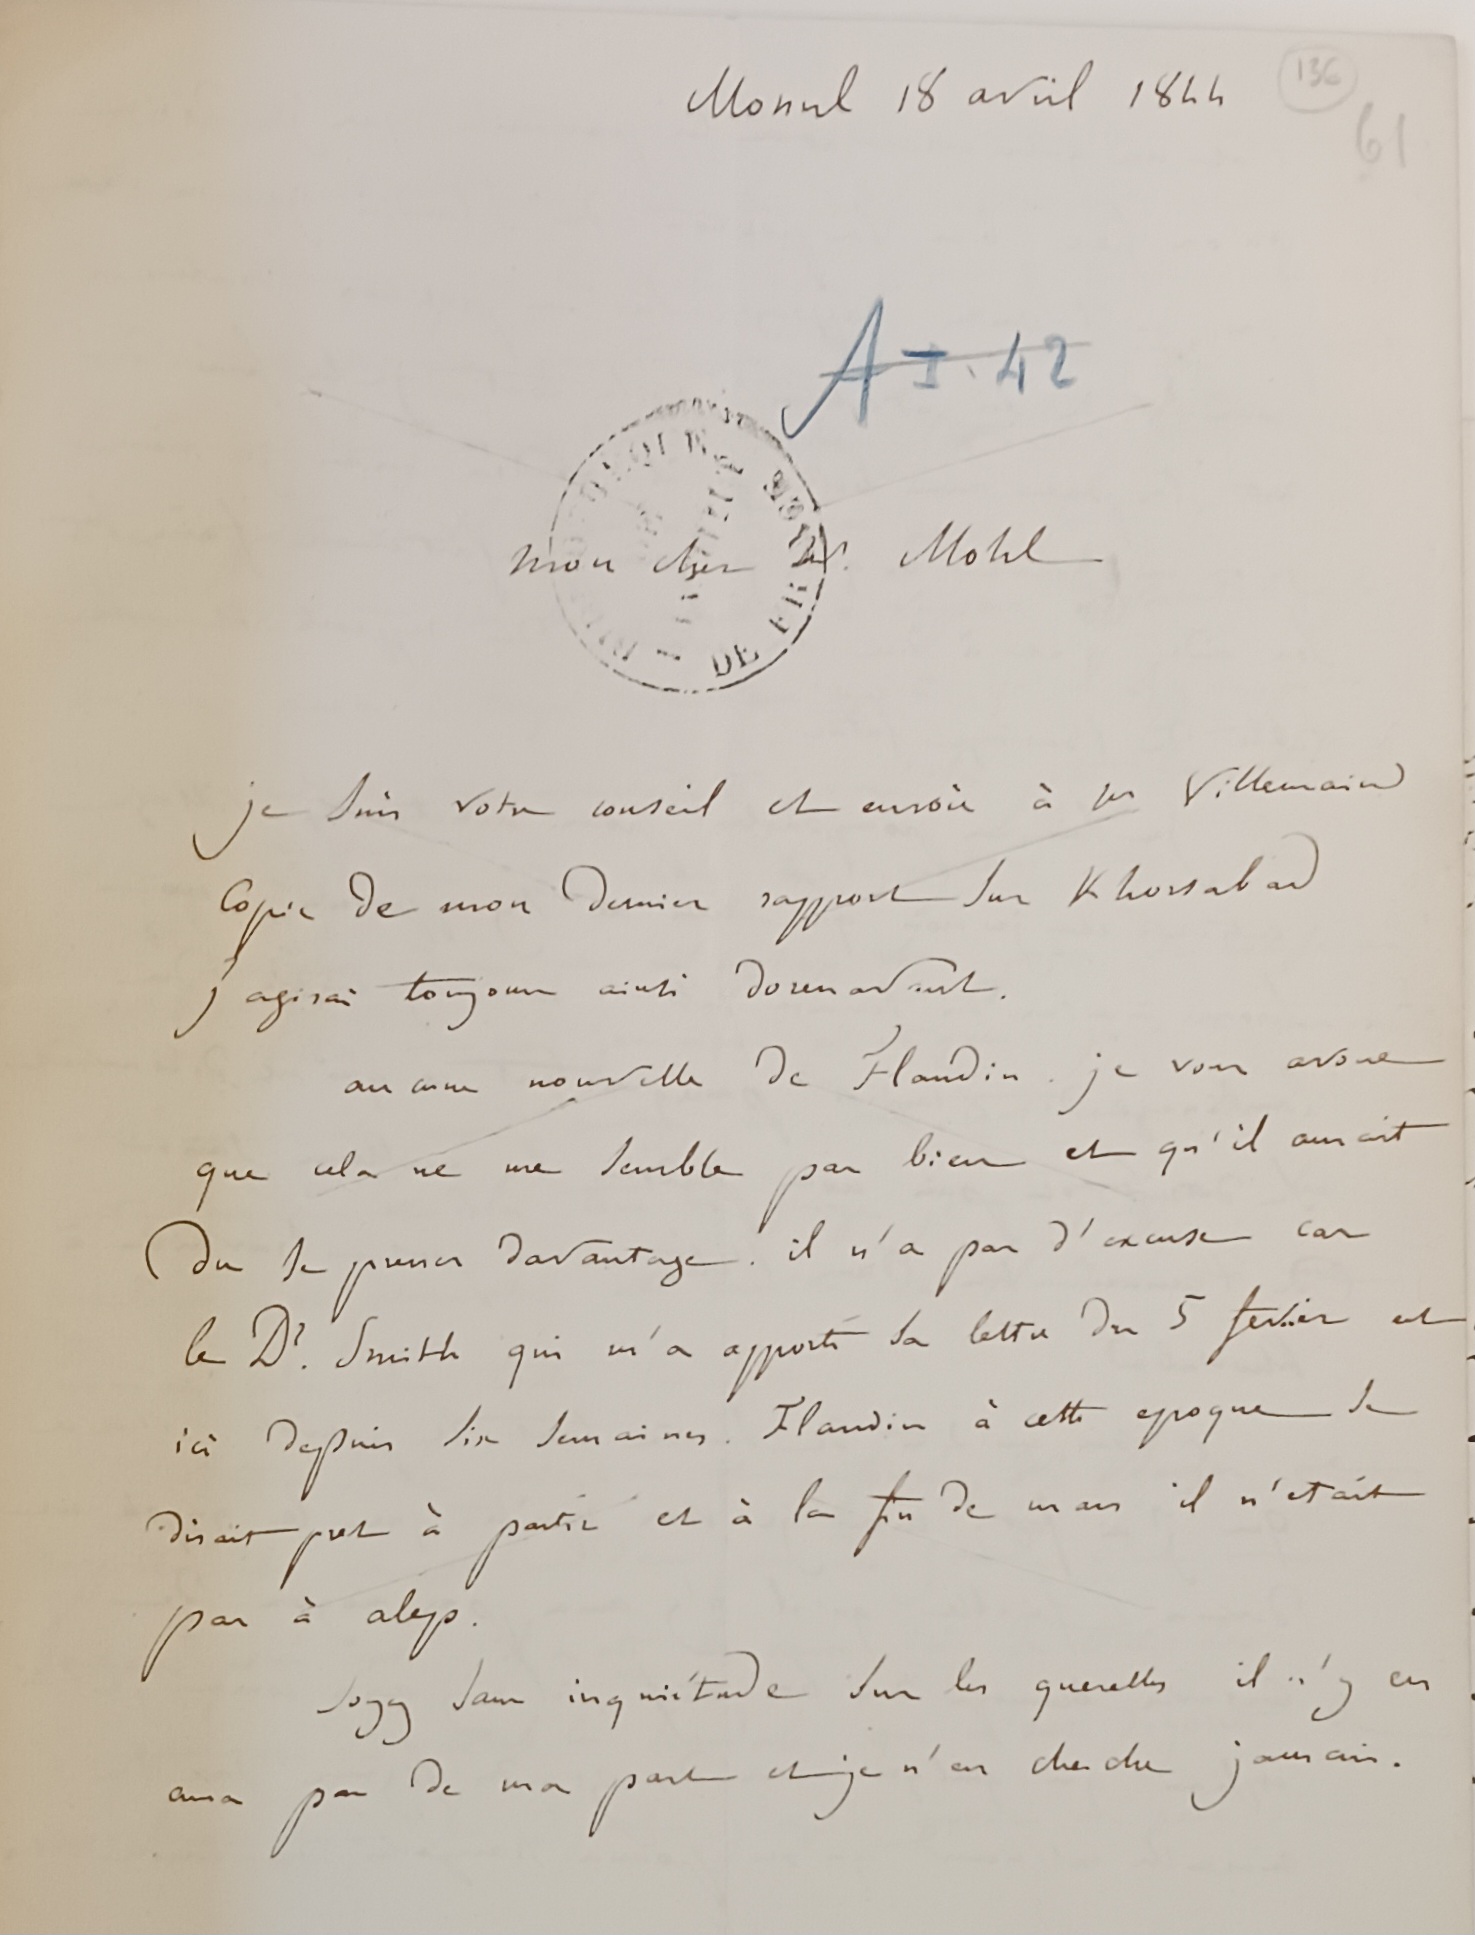 Mossul 18 avril 1844
136
61
A I. 42
DE FR
mon cher Mr. Mohl
je suis votre conseil et envoie à Mr Villemain
copie de mon dernier rapport sur Khorsabad
j'agirai toujours ainsi dorenavant.
aucune nouvelle de Flandin. je vous avoue
que cela ne me semble pas bien et qu'il aurait
du se presser davantage. il n'a pas d'excuse car
le Dr. Smith qui m'a apporté sa lettre du 5 fevrier est
ici depuis six semaines. Flandin à cette epoque se
disait pret à partir et à la fin de mars il n'etait
pas à alep.
soyez sans inquiétude sur les querelles il n'y en
aura pas de ma part et je n'en cherche jamais.